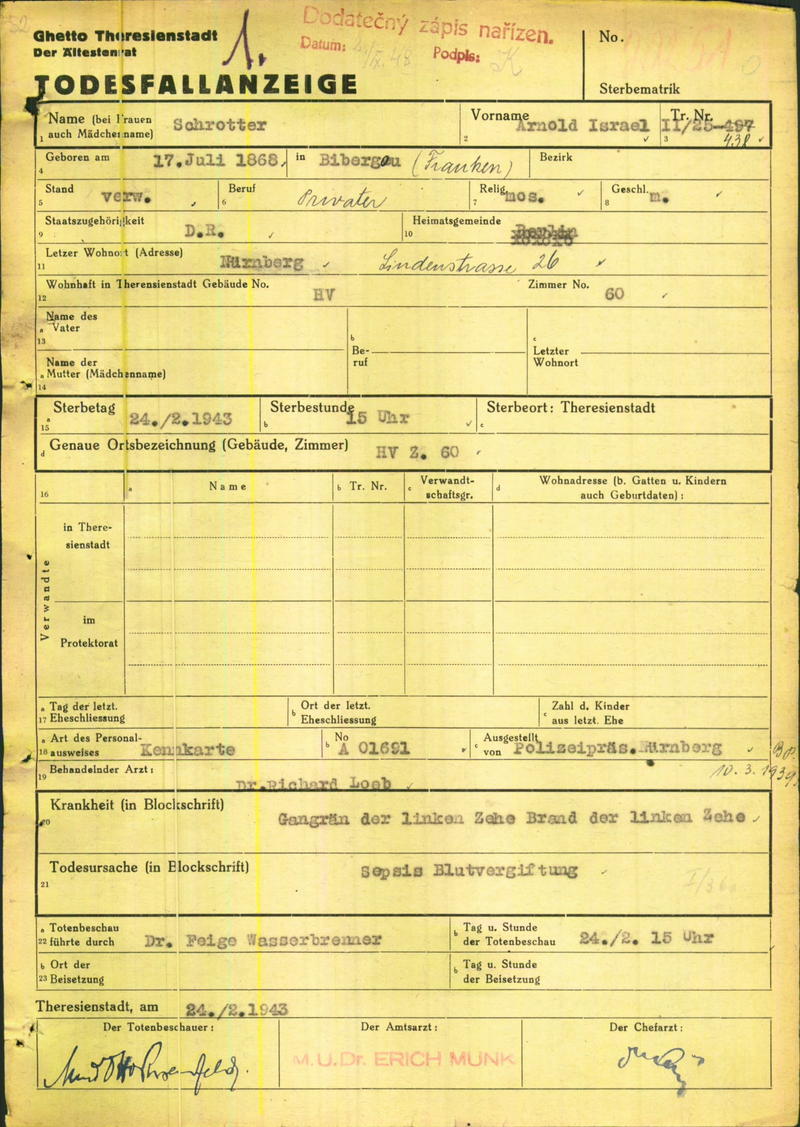 Ghetto Theresienstadt
Der Ältestenrat
1.
Dodatečný zápis nařízen.
Datum:
Podpis: K
No.
Sterbematrik
TODESFALLANZEIGE
Name (bei Frauen auch Mädchenname) Schrotter
1
Vorname Arnold Israel
2
Tr. Nr. II/25-497
3 438
Geboren am 17.Juli 1868, in Bibergau (Franken) Bezirk
4
Stand verw. Beruf Privater Relig. mos. Geschl. m.
5 6 7 8
Staatszugehörigkeit D.R. Heimatsgemeinde
9 10
Letzer Wohnort (Adresse) Nürnberg Lindenstrasse 26
11
Wohnhaft in Theresienstadt Gebäude No. HV Zimmer No. 60
12
Name des
a Vater
13
b
Be-
ruf
c
Letzter
Wohnort
Name der
a Mutter (Mädchenname)
14
Sterbetag 24./2.1943 Sterbestunde 15 Uhr Sterbeort: Theresienstadt
a 15 b c
d Genaue Ortsbezeichnung (Gebäude, Zimmer) HV Z. 60
16 a Name b Tr. Nr. c Verwandt-schaftsgr. d Wohnadresse (b. Gatten u. Kindern auch Geburtdaten):
Verwandte
in There-
sienstadt
im
Protektorat
a Tag der letzt.
17 Eheschliessung
b Ort der letzt.
Eheschliessung
c Zahl d. Kinder
aus letzt. Ehe
a Art des Personal-
18 ausweises Kennkarte
b No A 01691
c Ausgestellt
von Polizeipräs.Nürnberg
10.3.1939
Behandelnder Arzt: Dr.Richard Loeb
19
Krankheit (in Blockschrift) Gangrän der linken Zehe Brand der linken Zehe
20
Todesursache (in Blockschrift) Sepsis Blutvergiftung
21
a Totenbeschau
22 führte durch Dr. Feige Wasserbrenner
b Tag u. Stunde
der Totenbeschau 24./2. 15 Uhr
b Ort der
23 Beisetzung
b Tag u. Stunde
der Beisetzung
Theresienstadt, am 24./2.1943
Der Totenbeschauer: Der Amtsarzt: Der Chefarzt:
M.U.Dr. ERICH MUNK